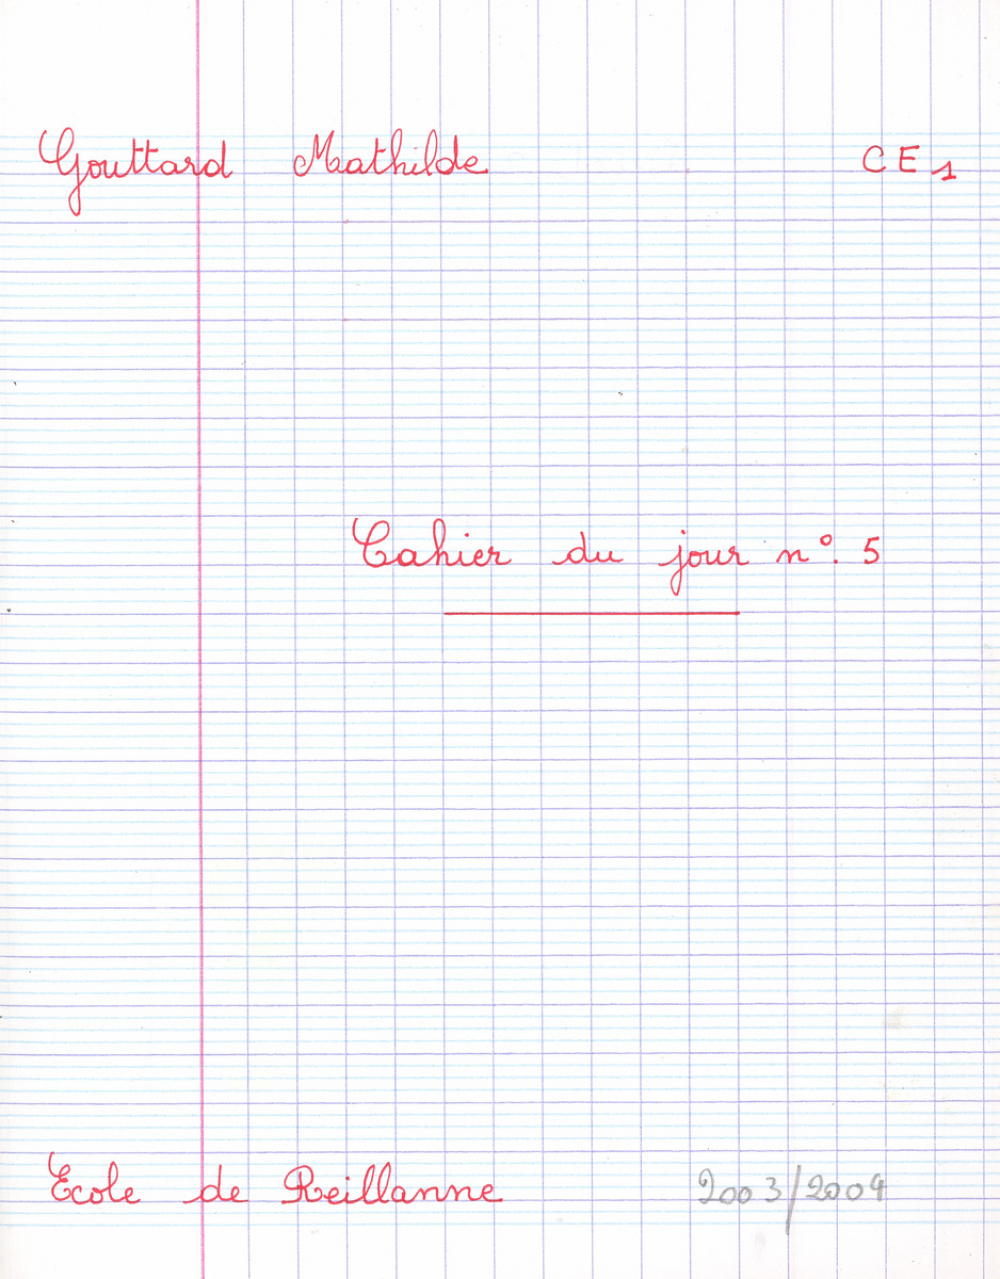 Gouttard Mathilde CE1
Cahier du jour n°. 5
Ecole de Reillanne 2003/2004